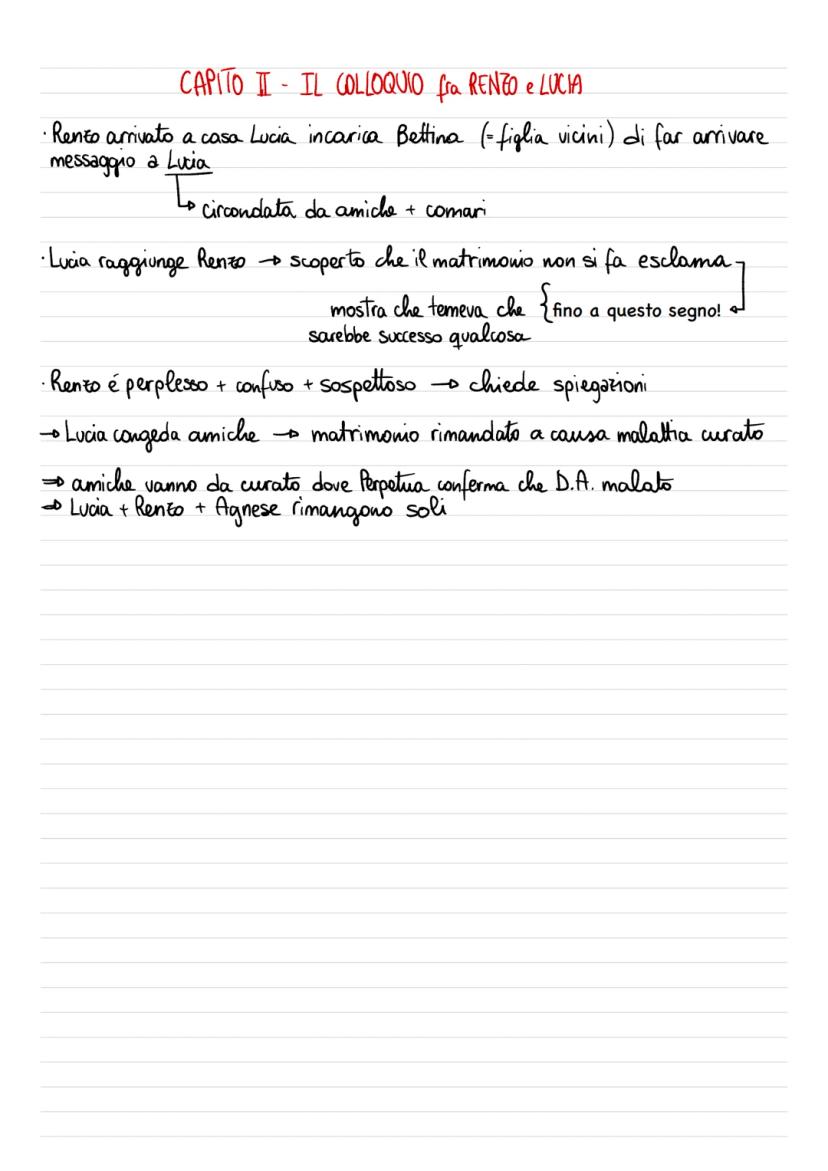 CAPITO II - IL COLLOQUIO fra RENZO e LUCIA
· Renzo arrivato a casa Lucia incarica Bettina (= figlia vicini) di far arrivare
messaggio a Lucia
↳ circondata da amiche + comari
· Lucia raggiunge Renzo → scoperto che il matrimonio non si fa esclama
mostra che temeva che { fino a questo segno!
sarebbe successo qualcosa
· Renzo é perplesso + confuso + sospettoso → chiede spiegazioni
→ Lucia congeda amiche → matrimonio rimandato a causa malattia curato
⇒ amiche vanno da curato dove Perpetua conferma che D.A. malato
⇒ Lucia + Renzo + Agnese rimangono soli